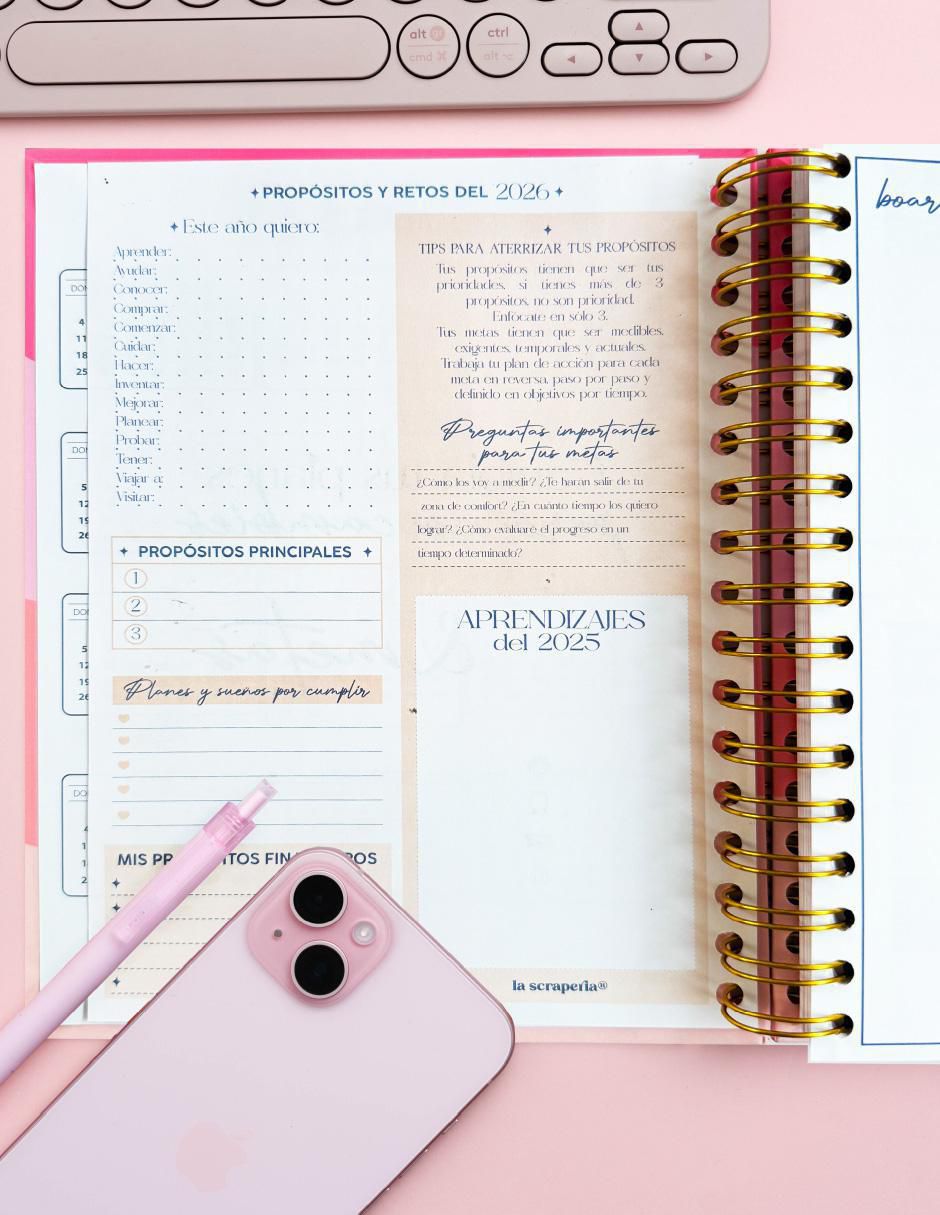 alt gr
cmd ⌘
ctrl
alt ⌥
PROPÓSITOS Y RETOS DEL 2026
Este año quiero:
Aprender:
Ayudar:
Conocer:
Comprar:
Comenzar:
Cuidar:
Hacer:
Inventar:
Mejorar:
Planear:
Probar:
Tener:
Viajar a:
Visitar:
PROPÓSITOS PRINCIPALES
1
2
3
Planes y sueños por cumplir
MIS PR
ITOS FIN
ROS
TIPS PARA ATERRIZAR TUS PROPÓSITOS
Tus propósitos tienen que ser tus
prioridades, si tienes más de 3
propósitos, no son prioridad.
Enfócate en sólo 3.
Tus metas tienen que ser medibles,
exigentes, temporales y actuales.
Trabaja tu plan de acción para cada
meta en reversa, paso por paso y
definido en objetivos por tiempo.
Preguntas importantes
para tus metas
¿Cómo los voy a medir? ¿Te harán salir de tu
zona de comfort? ¿En cuánto tiempo los quiero
lograr? ¿Cómo evaluaré el progreso en un
tiempo determinado?
APRENDIZAJES
del 2025
la scraperia®
DO
4
11
18
25
DO
5
12
19
26
DO
5
12
19
26
DO
boar